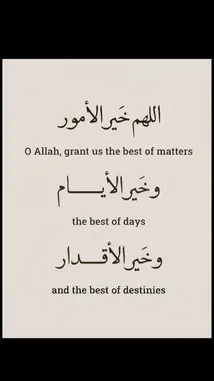 اللهم خَير الأمور
O Allah, grant us the best of matters
وخَير الأيـــام
the best of days
وخَير الأقــدار
and the best of destinies